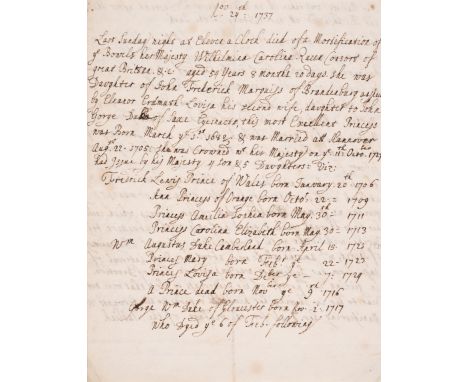 Nov th
24 : 1737
Last Sunday night at Eleven a Clock died of a Mortification of
ye Bowils her Majesty Wilhelmina Carolina Queen Consort of
great Britain &c aged 54 Years 8 months 20 days she was
Daughter of John Frederick Marquiss of Brandenburg
by Eleanor Erdmuth Lovisa his second wife, daughter to John
Gorge Duke of Saxe Eysenach, this most Excellent Princess
was Born March ye 1st 1682 & was Married att Hannover
Augst 22 1705 she was Crowned wt her Majesty on ye 11th Octobr 1727
had Issue by his Majesty 4 Son & 5 Daughters : Viz:
Fredrick Lewis Prince of Wales born January 20th 1706
Ann Princess of Orange born Octor 22 = 1709
Princess Amelia Sophia born May 30th 1711
Princess Carolina Elizabeth born May 30 = 1713
Wm Augustus Duke Cumberland born April 15 1721
Princes Mary born Febr ye 22 - 1723
Princes Lovisa born Debr ye - 7 : 1724
A Prince dead born Nov ye 9th 1716
Gorge Wm Duke of Glocester born Nov 2 1717
who Dyed ye 6 of Feb following